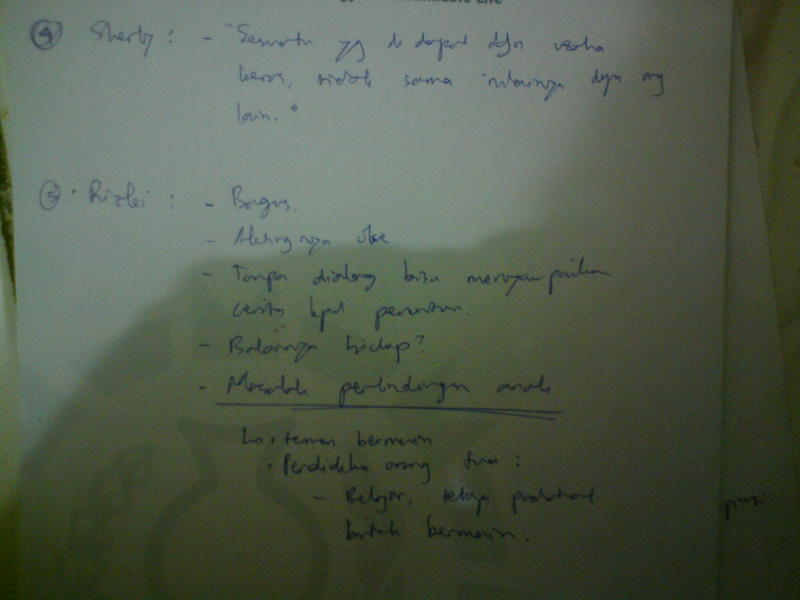 ④ Sherly : - "Sesuatu yg di dapat dgn usaha
keras, tidak sama nilainya dgn yg
lain."
⑤ Rizki : - Bagus.
- Aktingnya oke
- Tanpa dialog bisa menyampaikan
cerita kpd penonton.
- Balonnya hidup?
- Masalah perlindungan anak
↳ • teman bermain
• Pendidikan orang tua :
- Belajar, tetapi
butuh bermain.